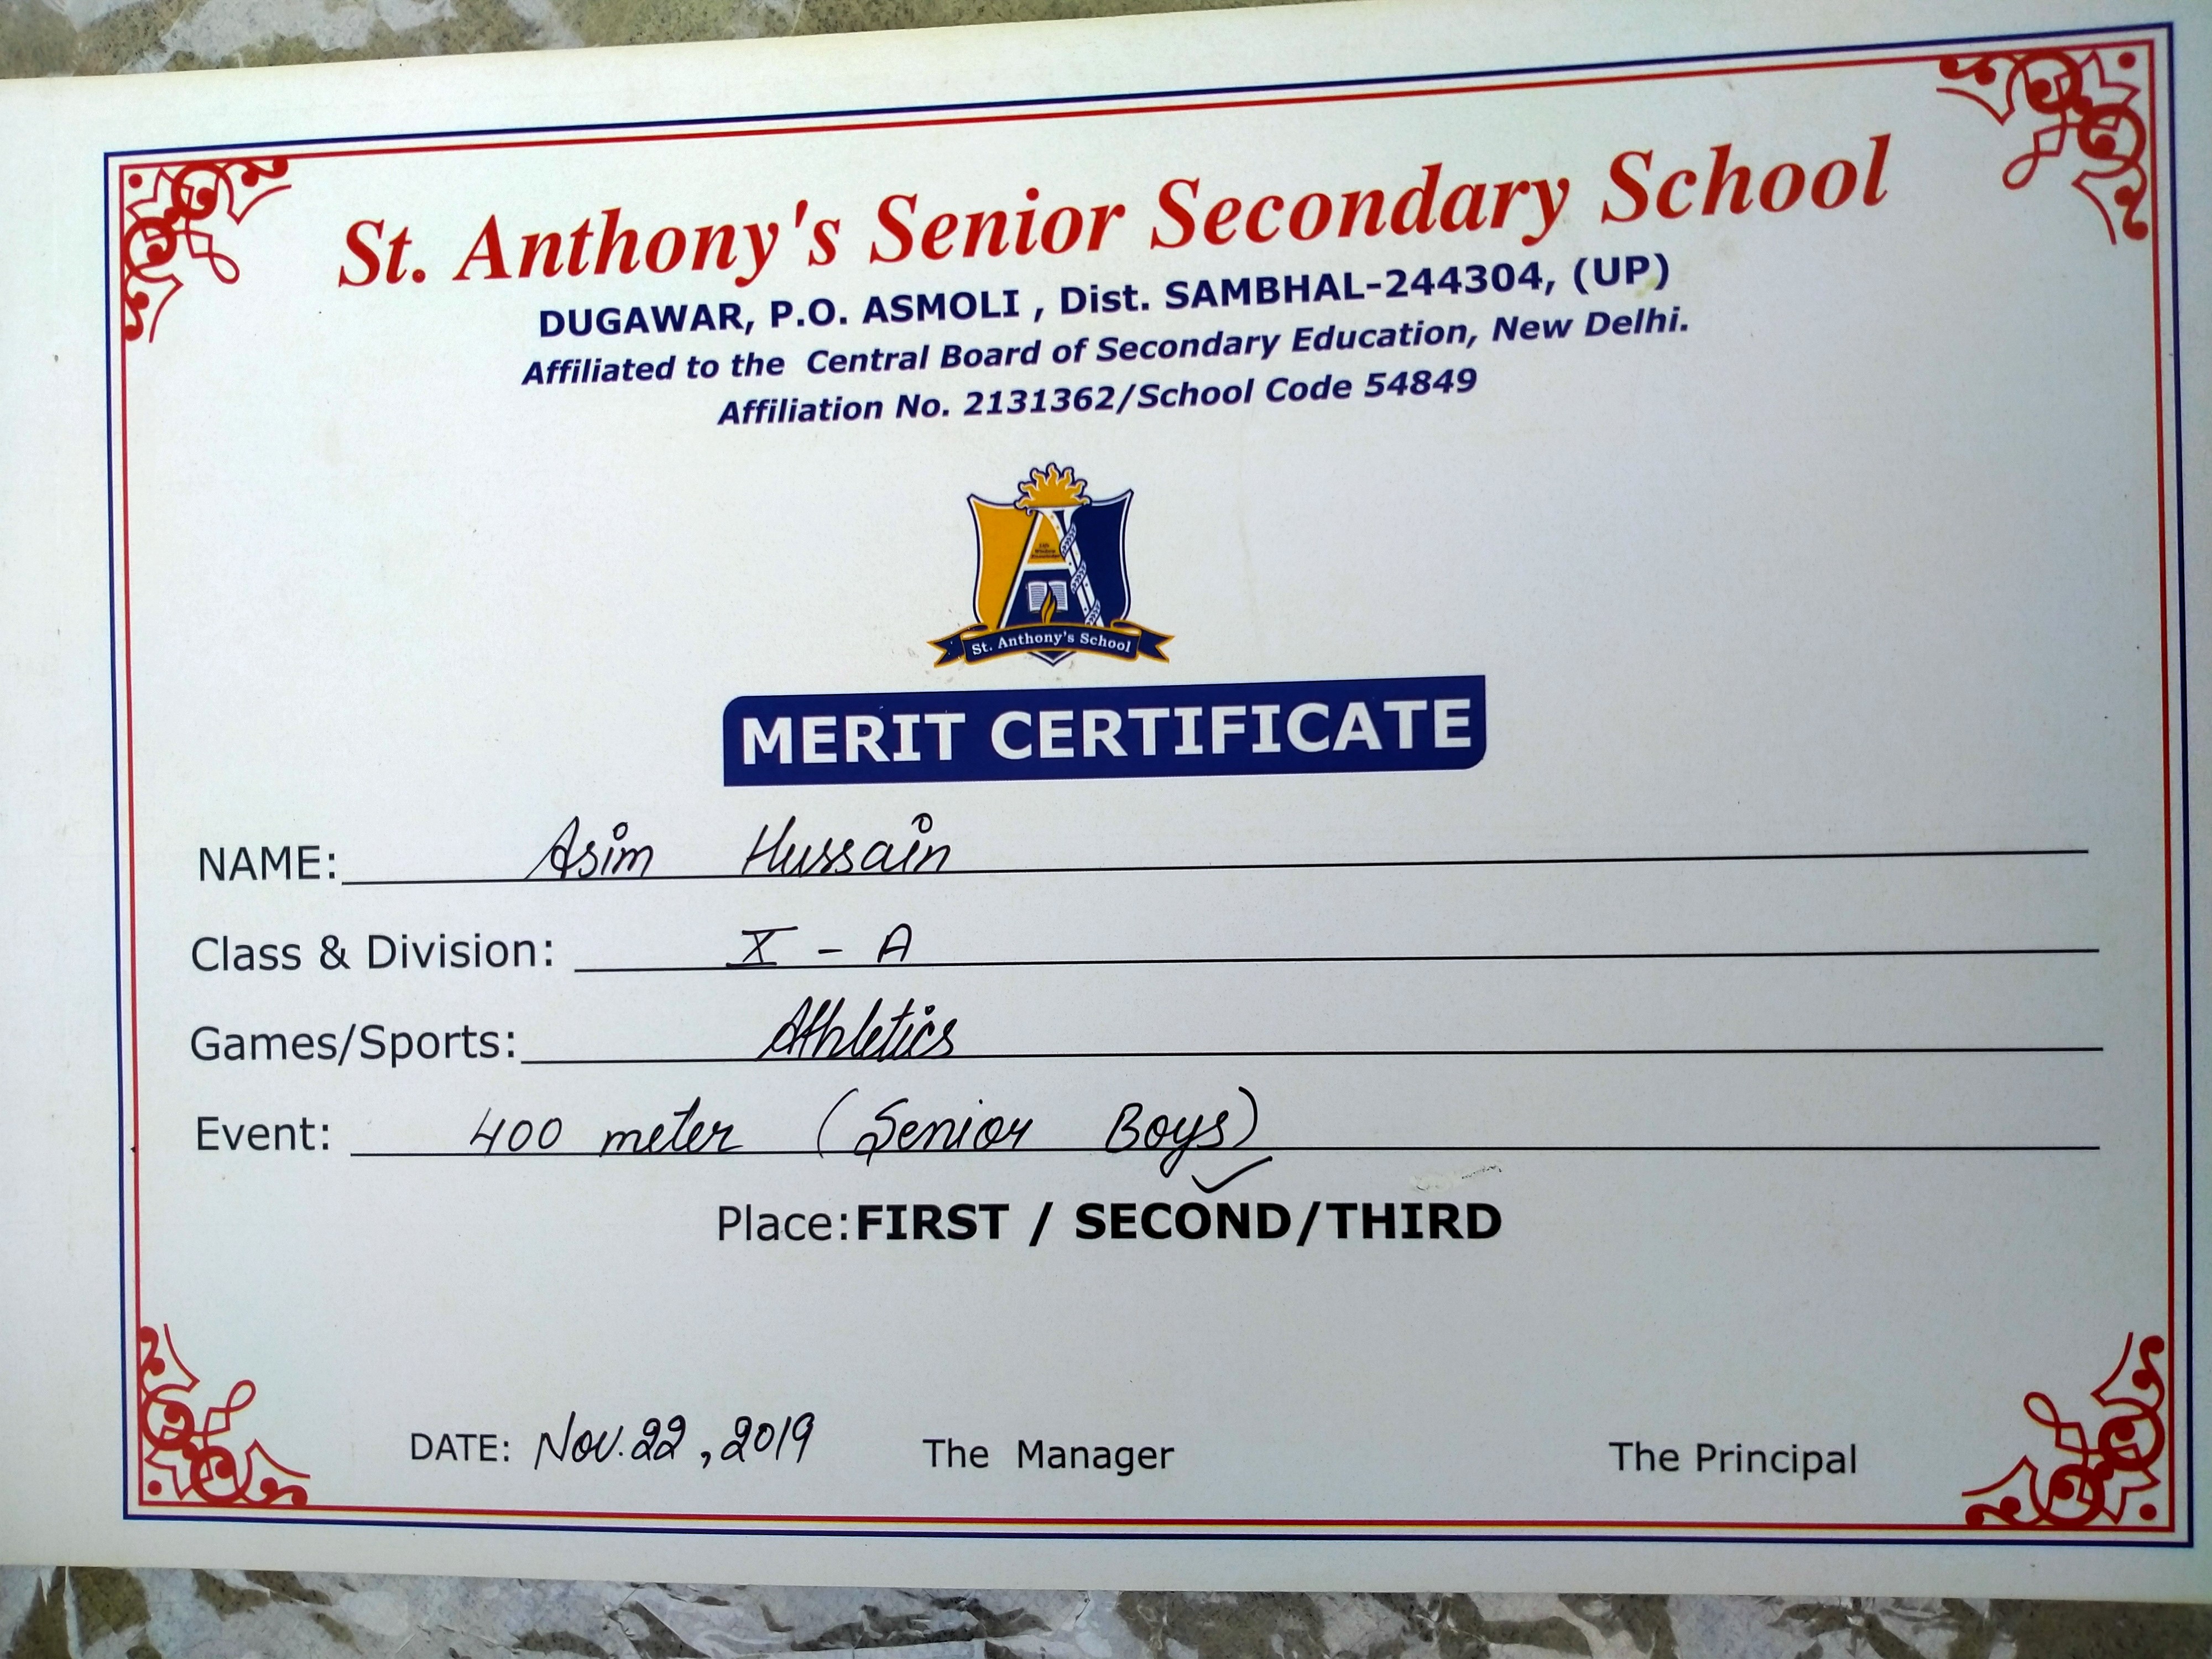 St. Anthony's Senior Secondary School
DUGAWAR, P.O. ASMOLI , Dist. SAMBHAL-244304, (UP)
Affiliated to the Central Board of Secondary Education, New Delhi.
Affiliation No. 2131362/School Code 54849
St. Anthony's School
MERIT CERTIFICATE
NAME: Asim Hussain
Class & Division: X - A
Games/Sports: Athletics
Event: 400 meter (Senior Boys)
Place:FIRST / SECOND/THIRD
DATE: Nov. 22, 2019 The Manager The Principal